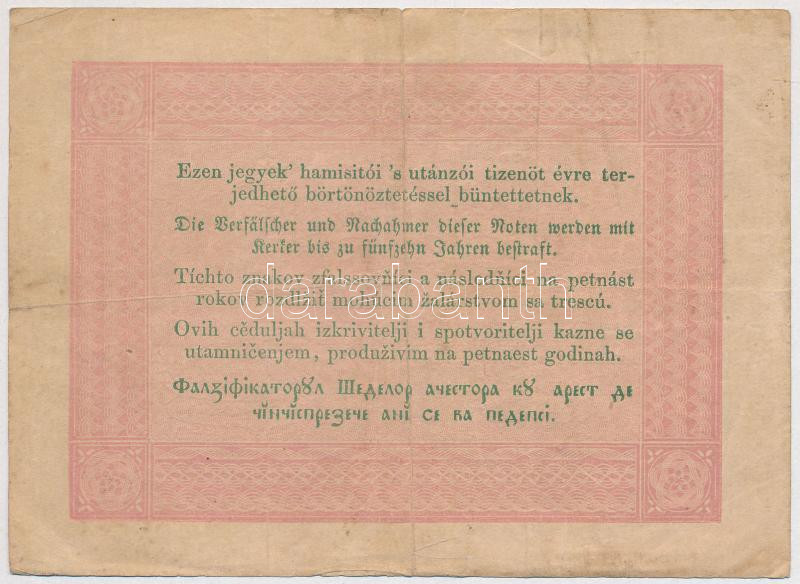 Ezen jegyek' hamisitói 's utánzói tizenöt évre ter-
jedhető börtönöztetéssel büntettetnek.
Die Verfälscher und Nachahmer dieser Noten werden mit
Kerker bis zu fünfzehn Jahren bestraft.
Tíchto znakov zfalssovňíci a následňíci na petnást
rokov rozdlžiť mohúcim žalárstvom sa trescú.
darabanth
Ovih cěduljah izkrivitelji i spotvoritelji kazne se
utamničenjem, produživim na petnaest godinah.
Фалꙁіфікаторꙋл Шеделор ачестора кꙋ арест де
чінчіспрезече ані се ва педепсі.